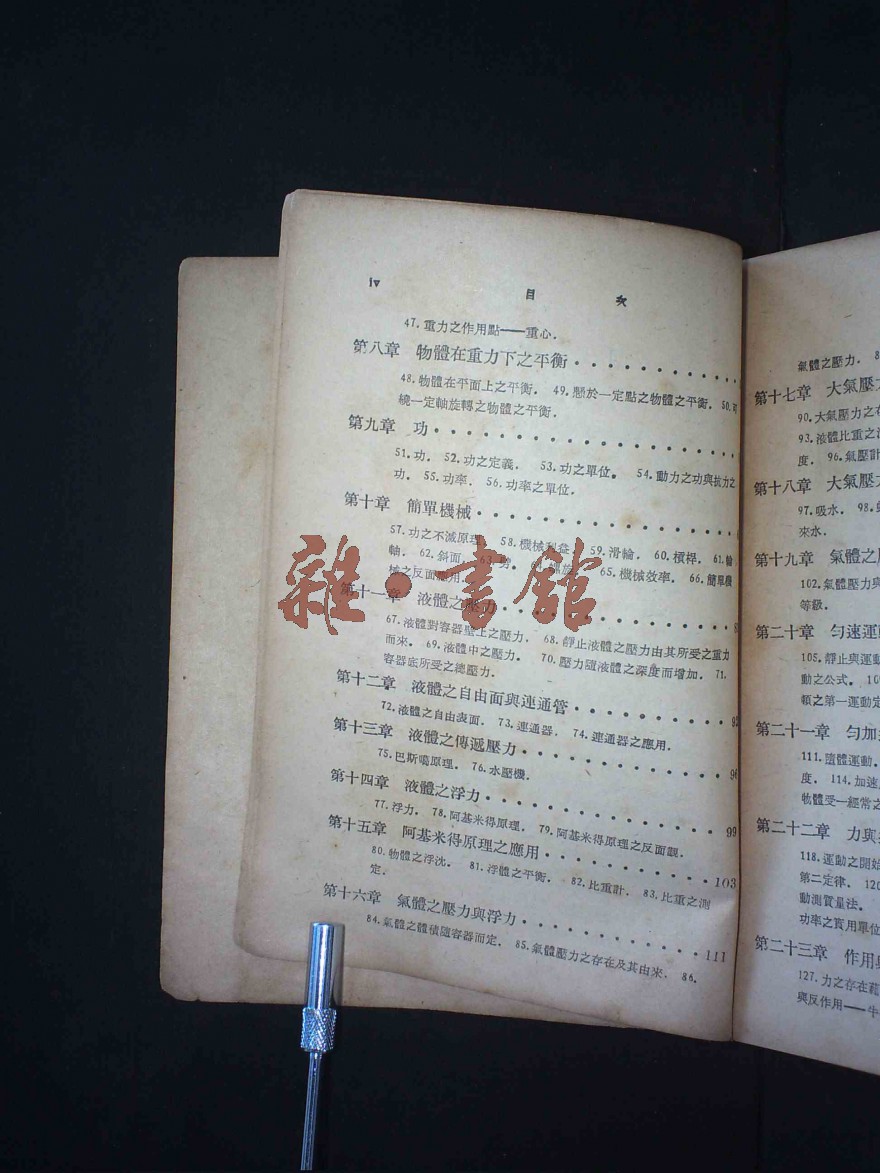 iv 目 次
47.重力之作用點——重心.
第八章 物體在重力下之平衡
48.物體在平面上之平衡. 49.懸於一定點之物體之平衡. 50.可
繞一定軸旋轉之物體之平衡.
第九章 功
51.功. 52.功之定義. 53.功之單位. 54.動力之功與抗力之
功. 55.功率. 56.功率之單位.
第十章 簡單機械
57.功之不滅原理. 58.機械利益. 59.滑輪. 60.槓桿. 61.輪
軸. 62.斜面. 63.劈. 65.機械效率. 66.簡單機
械之反面應用.
第十一章 液體之壓力
67.液體對容器壁上之壓力. 68.靜止液體之壓力由其所受之重力
而來. 69.液體中之壓力. 70.壓力隨液體之深度而增加. 71.
容器底所受之總壓力.
第十二章 液體之自由面與連通管
72.液體之自由表面. 73.連通器. 74.連通器之應用.
第十三章 液體之傳遞壓力 96
75.巴斯噶原理. 76.水壓機.
第十四章 液體之浮力 99
77.浮力. 78.阿基米得原理. 79.阿基米得原理之反面觀.
第十五章 阿基米得原理之應用 103
80.物體之浮沈. 81.浮體之平衡. 82.比重計. 83.比重之測
定.
第十六章 氣體之壓力與浮力 111
84.氣體之體積隨容器而定. 85.氣體壓力之存在及其由來. 86.
氣體之壓力.
第十七章 大氣壓
90.大氣壓力之存
93.液體比重之
度. 96.氣壓計
第十八章 大氣壓
97.吸水. 98.
來水.
第十九章 氣體之
102.氣體壓力與
等級.
第二十章 勻速運
105.靜止與運動
動之公式.
頓之第一運動定
第二十一章 勻加
111.墮體運動.
度. 114.加速
物體受一經常之
第二十二章 力與
118.運動之開始
第二定律. 120
動測質量法.
功率之實用單位
第二十三章 作用與
127.力之存在範
與反作用——牛
雜·書館